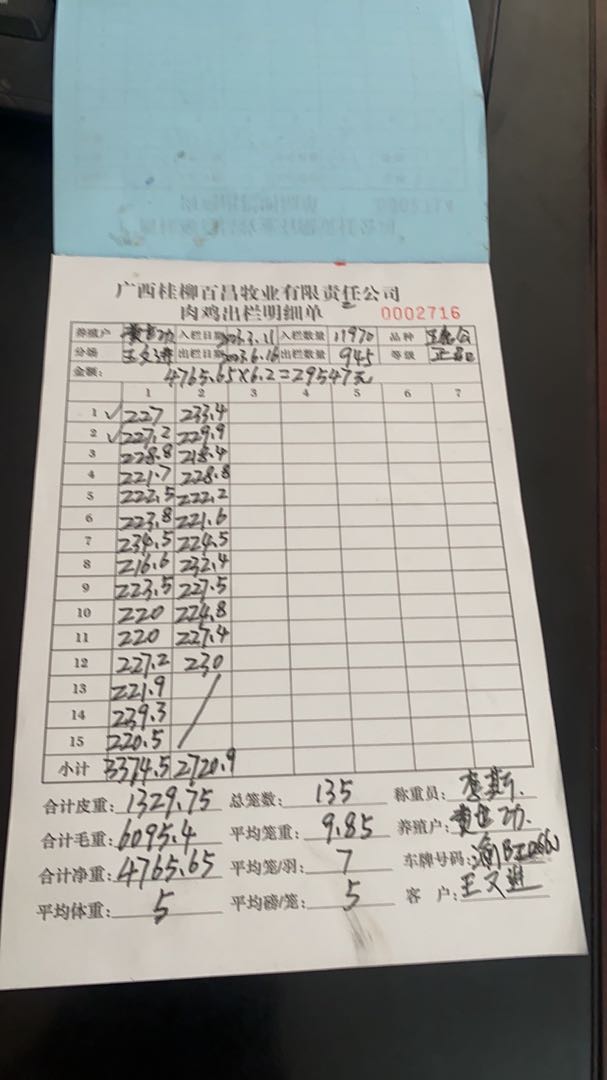 广西桂柳百昌牧业有限责任公司
肉鸡出栏明细单 0002716
养殖户 入栏日期 2023.3.11 入栏数量 11970 品种
分场 王又进 出栏日期 2023.6.16 出栏数量 945 等级 正品
金额: 4765.65×6.2=29547元
1 2 3 4 5 6 7
1 ✓ 227 233.4
2 ✓ 227.2 229.9
3 228.8 218.4
4 221.7 228.8
5 222.5 222.2
6 223.8 221.6
7 234.5 224.5
8 216.6 232.4
9 223.5 227.5
10 220 224.8
11 220 227.4
12 227.2 230
13 221.9
14 239.3
15 220.5
小计 3374.5 2720.9
合计皮重: 1329.75 总笼数: 135 称重员:
合计毛重: 6095.4 平均笼重: 9.85 养殖户:
合计净重: 4765.65 平均笼/羽: 7 车牌号码:
平均体重: 5 平均磅/笼: 5 客 户: 王又进